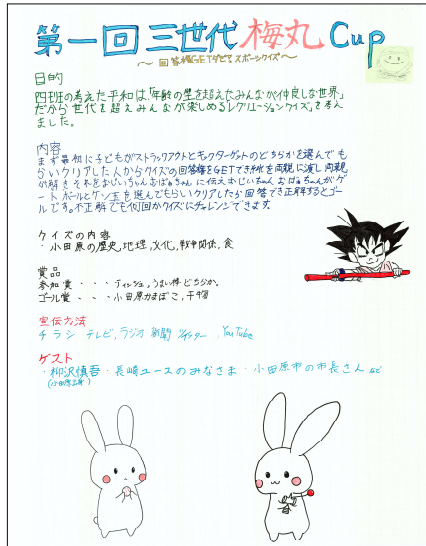 第一回三世代梅丸Cup
～回答権GETクイズスポーツクイズ～
目的
四班の考えた平和は、「年齢の壁を超えたみんなが仲良しな世界」
だから世代を超えみんなが楽しめるレクリエーションクイズ」を考え
ました。
内容
まず最初に子どもがストラックアウトとキックターゲットのどちらかを選んでも
らいクリアした人からクイズの回答権をGETでき 両親に渡し両親
が解きそれをおじいちゃんおばあちゃんに伝えおじいちゃんおばあちゃんがゲ
ートボールとケン玉を選んでもらいクリアしたら回答でき正解するとゴー
ルです。不正解でも何回かクイズにチャレンジできます。
クイズの内容
・小田原の歴史,地理,文化,戦争関係,食
賞品
参加賞・・・ティッシュ,うまい棒どちらか。
ゴール賞・・・小田原かまぼこ,干物
宣伝方法
チラシ テレビ,ラジオ 新聞 ツイッター ,YouTube
ゲスト
・柳沢慎吾・長崎ユースのみなさま・小田原市の市長さん など
(小田原出身)